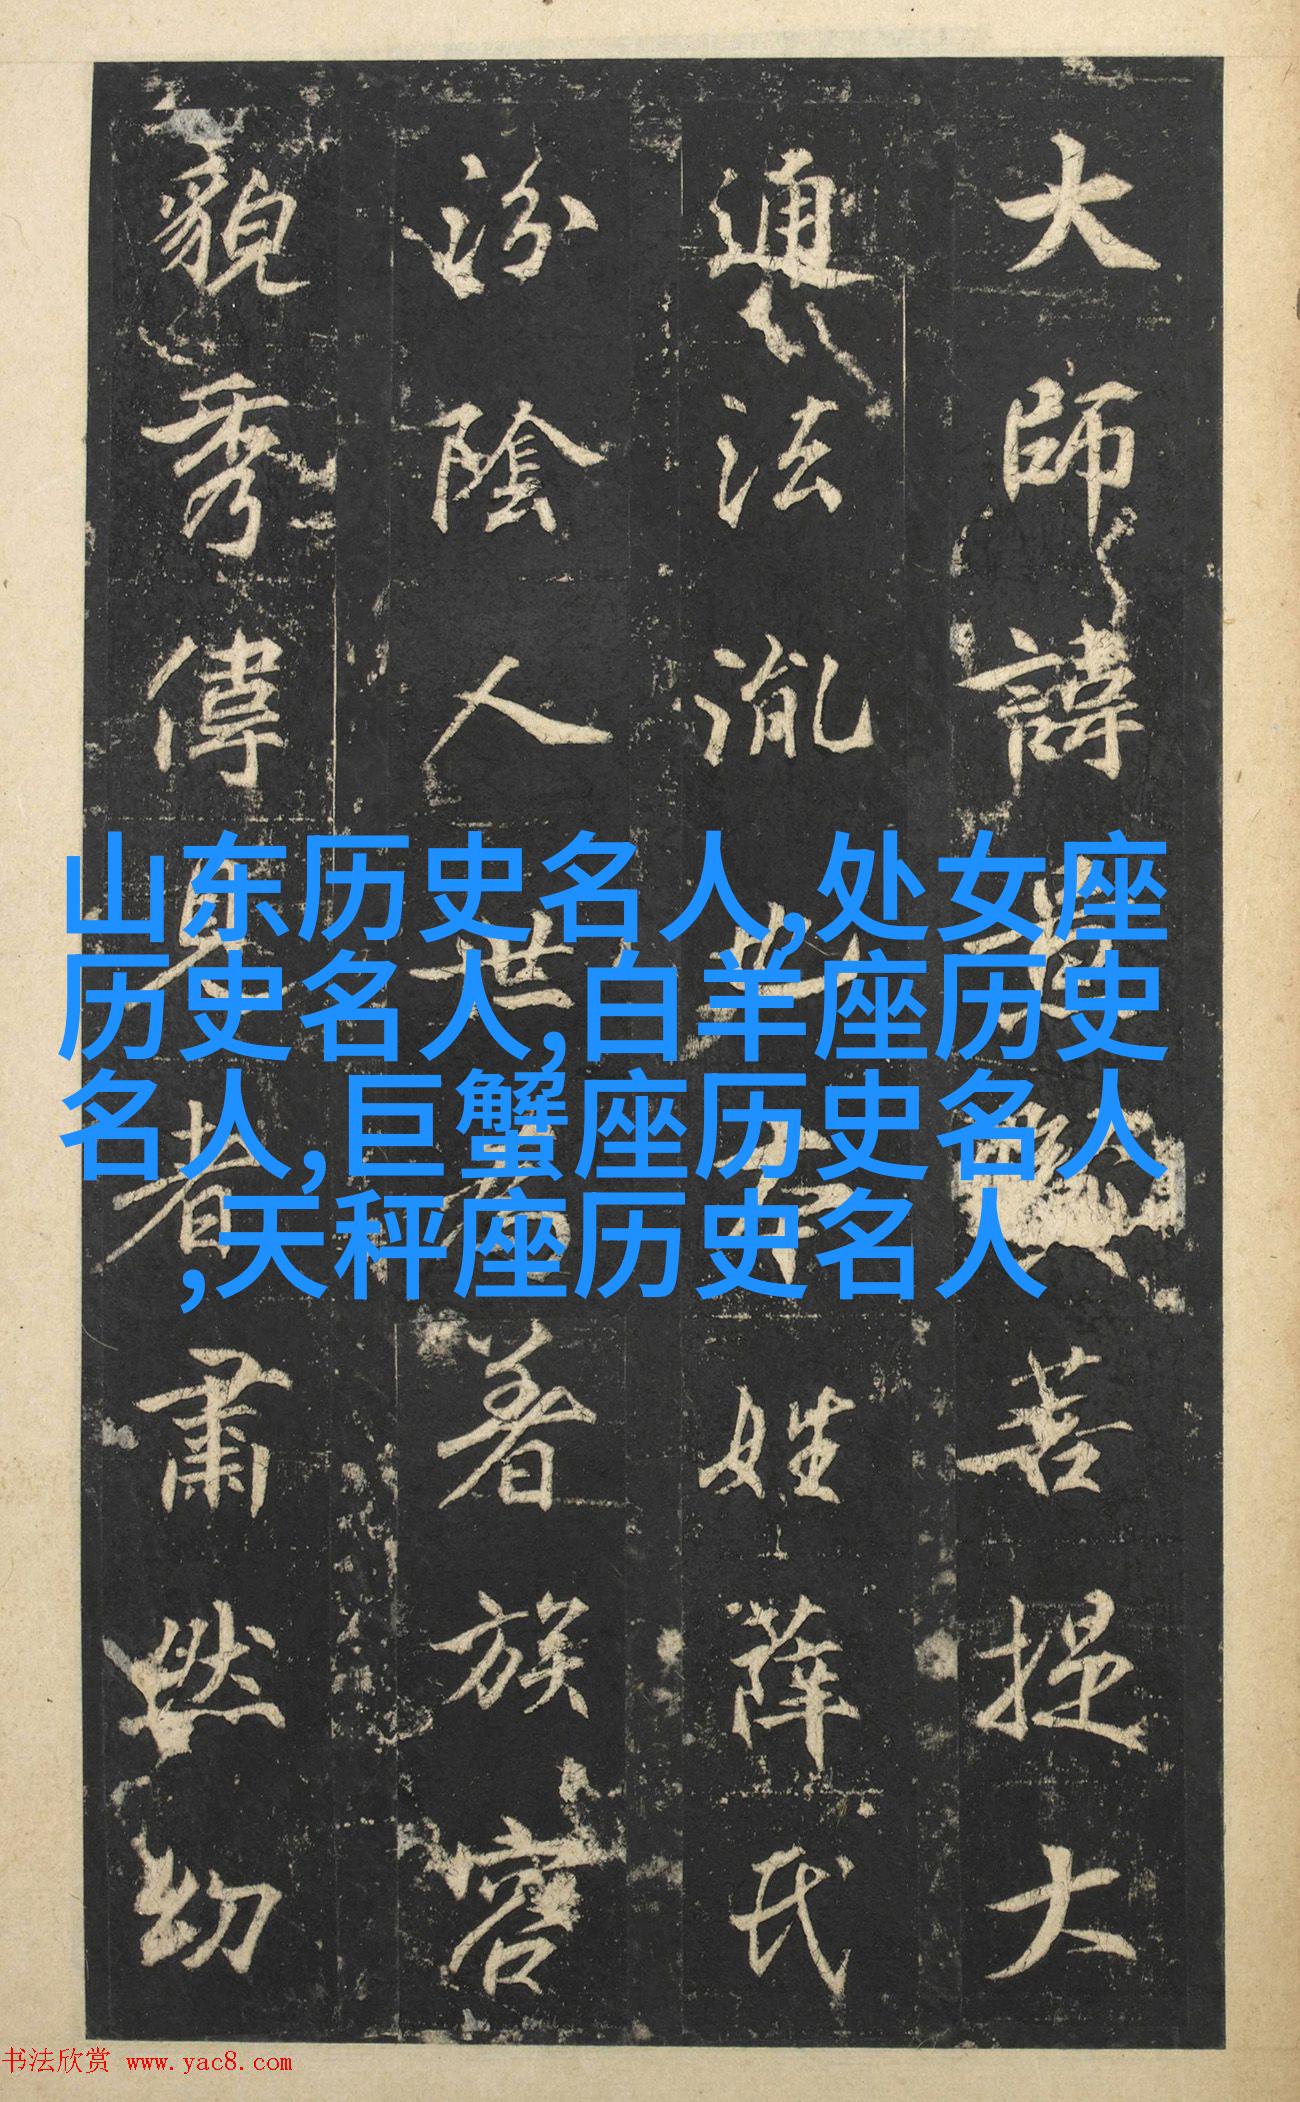 大師諱菩提大
通法也本姓薛氏
汾陰人世為著族容
貌秀偉見者肅然幼
山东历史名人,处女座
历史名人,白羊座历史
名人,巨蟹座历史名人
,天秤座历史名人
书法欣赏 www.yac8.com